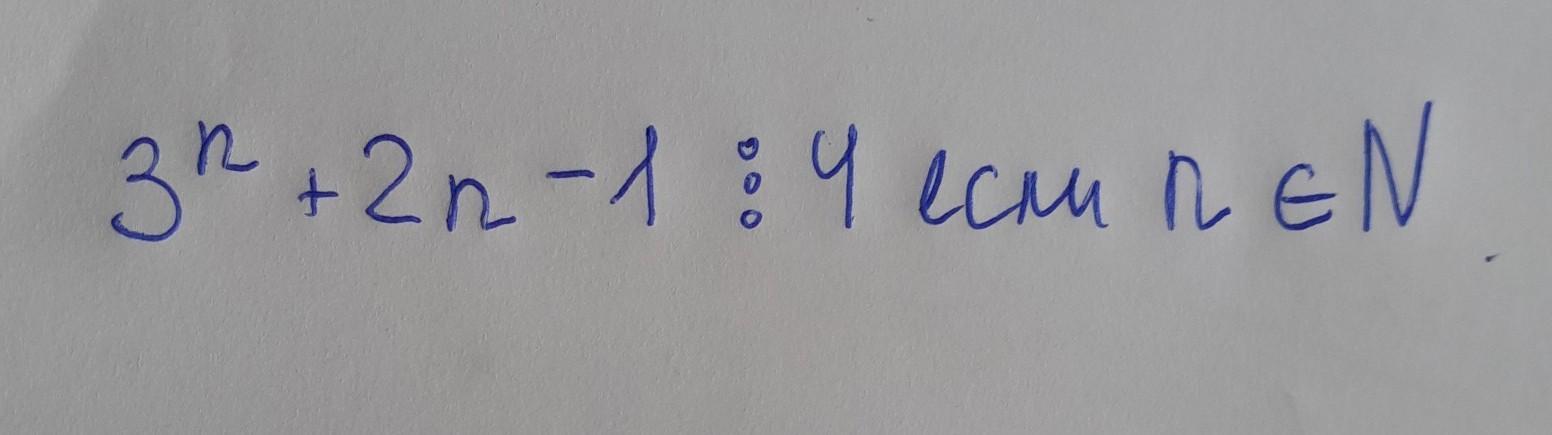 3ⁿ + 2n - 1 ⋮ 4 если n ∈ N